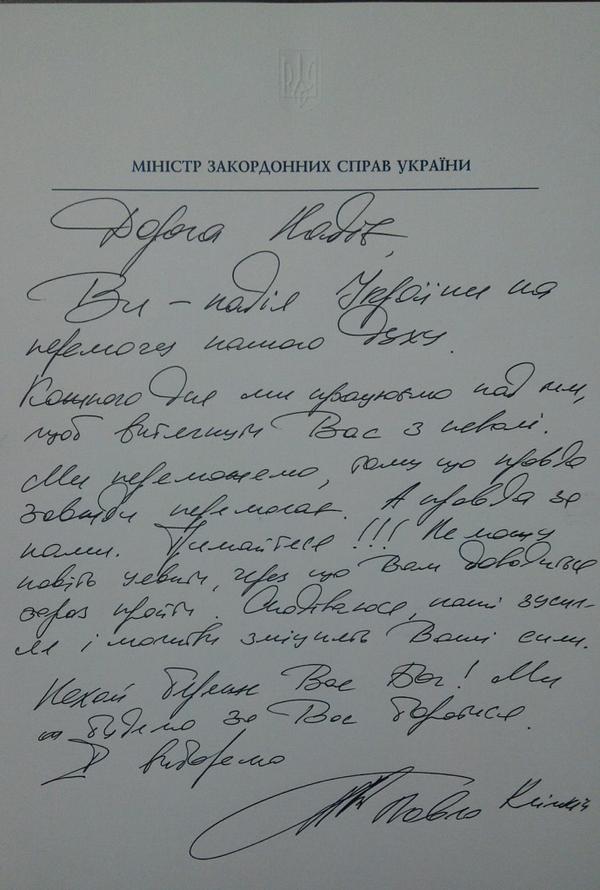 МІНІСТР ЗАКОРДОННИХ СПРАВ УКРАЇНИ
Дорога Надіє,
Ви – надія України на
перемогу нашого духу.
Кожного дня ми працюємо над тим,
щоб витягнути Вас з неволі.
Ми переможемо, тому що правда
завжди перемагає. А правда за
нами. Тримайтеся!!! Не можу
навіть уявити, через що Вам доводиться
зараз пройти. Сподіваюся, наші зусил-
ля і молитви зміцнять Ваші сили.
Нехай береже Вас Бог! Ми
будемо за Вас боротися.
І виборемо
Павло Клімкін